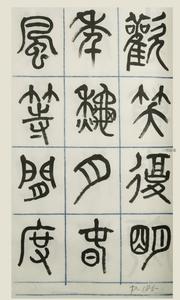 歡笑復明
年秋月春
風等閒度